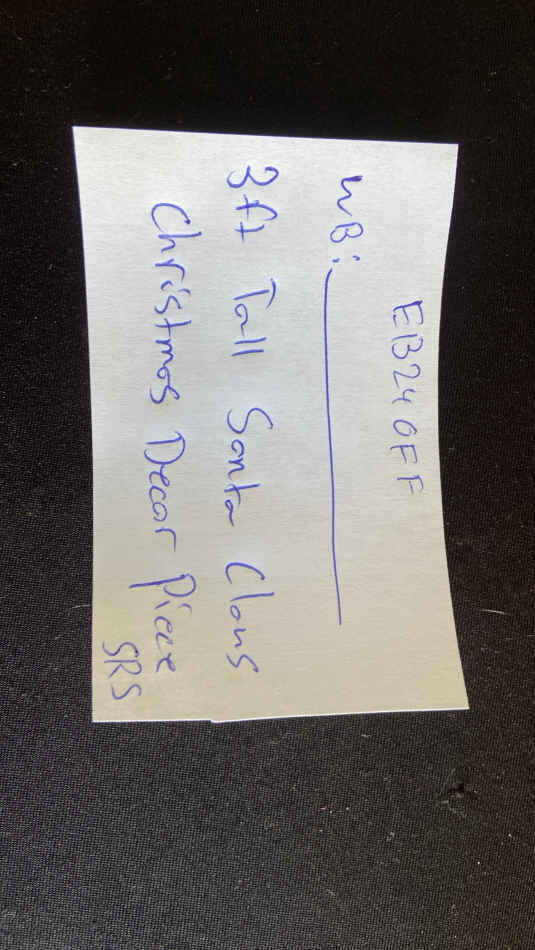 EB24OFF
WB:
3ft Tall Santa Claus
Christmas Decor Piece
SRS